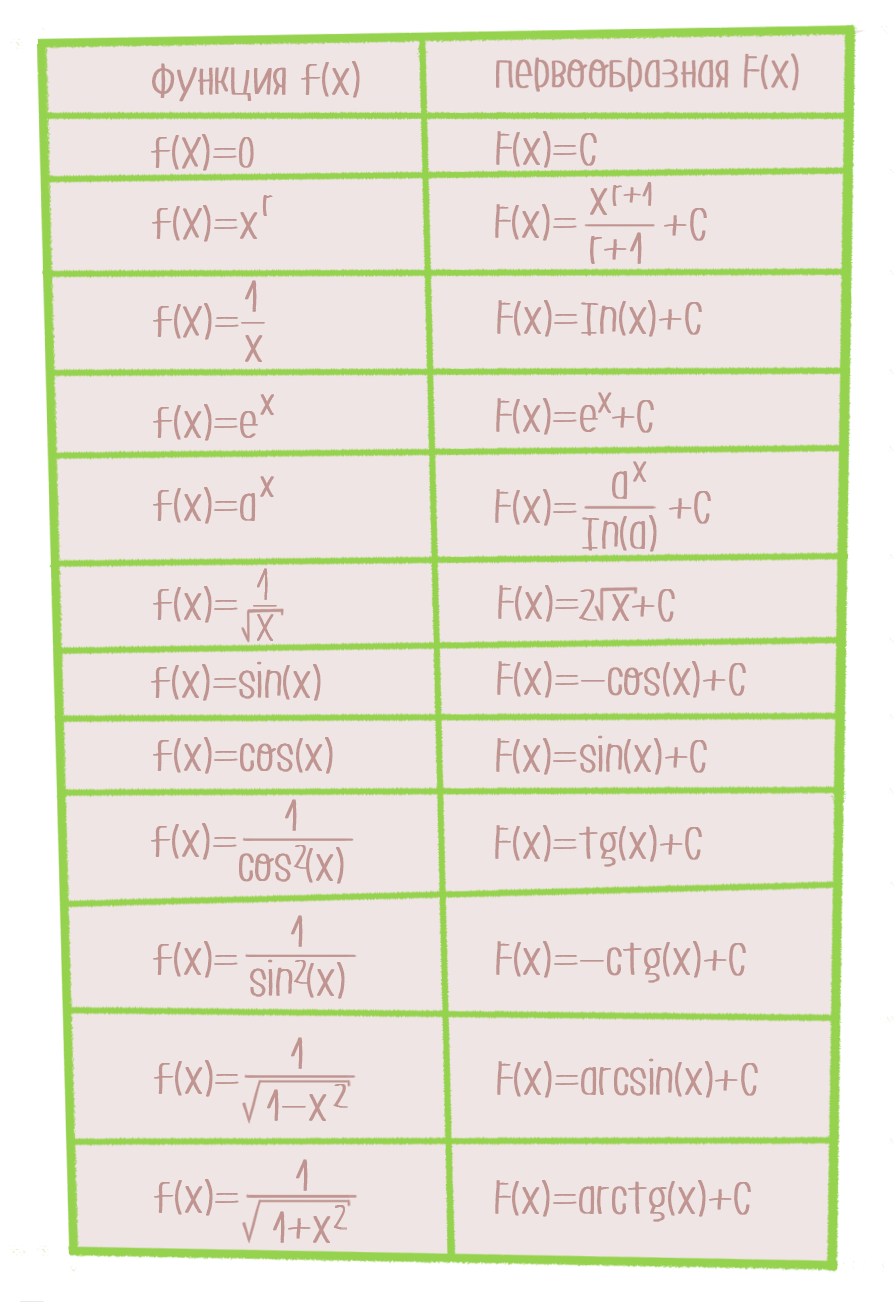 функция f(x) первообразная F(x)
f(x)=0 F(x)=C
f(x)=x^r F(x)=x^(r+1)/(r+1) +C
f(x)=1/x F(x)=In(x)+C
f(x)=e^x F(x)=e^x+C
f(x)=a^x F(x)=a^x/In(a) +C
f(x)=1/√x F(x)=2√x+C
f(x)=sin(x) F(x)=-cos(x)+C
f(x)=cos(x) F(x)=sin(x)+C
f(x)=1/cos²(x) F(x)=tg(x)+C
f(x)=1/sin²(x) F(x)=-ctg(x)+C
f(x)=1/√(1-x²) F(x)=arcsin(x)+C
f(x)=1/√(1+x²) F(x)=arctg(x)+C